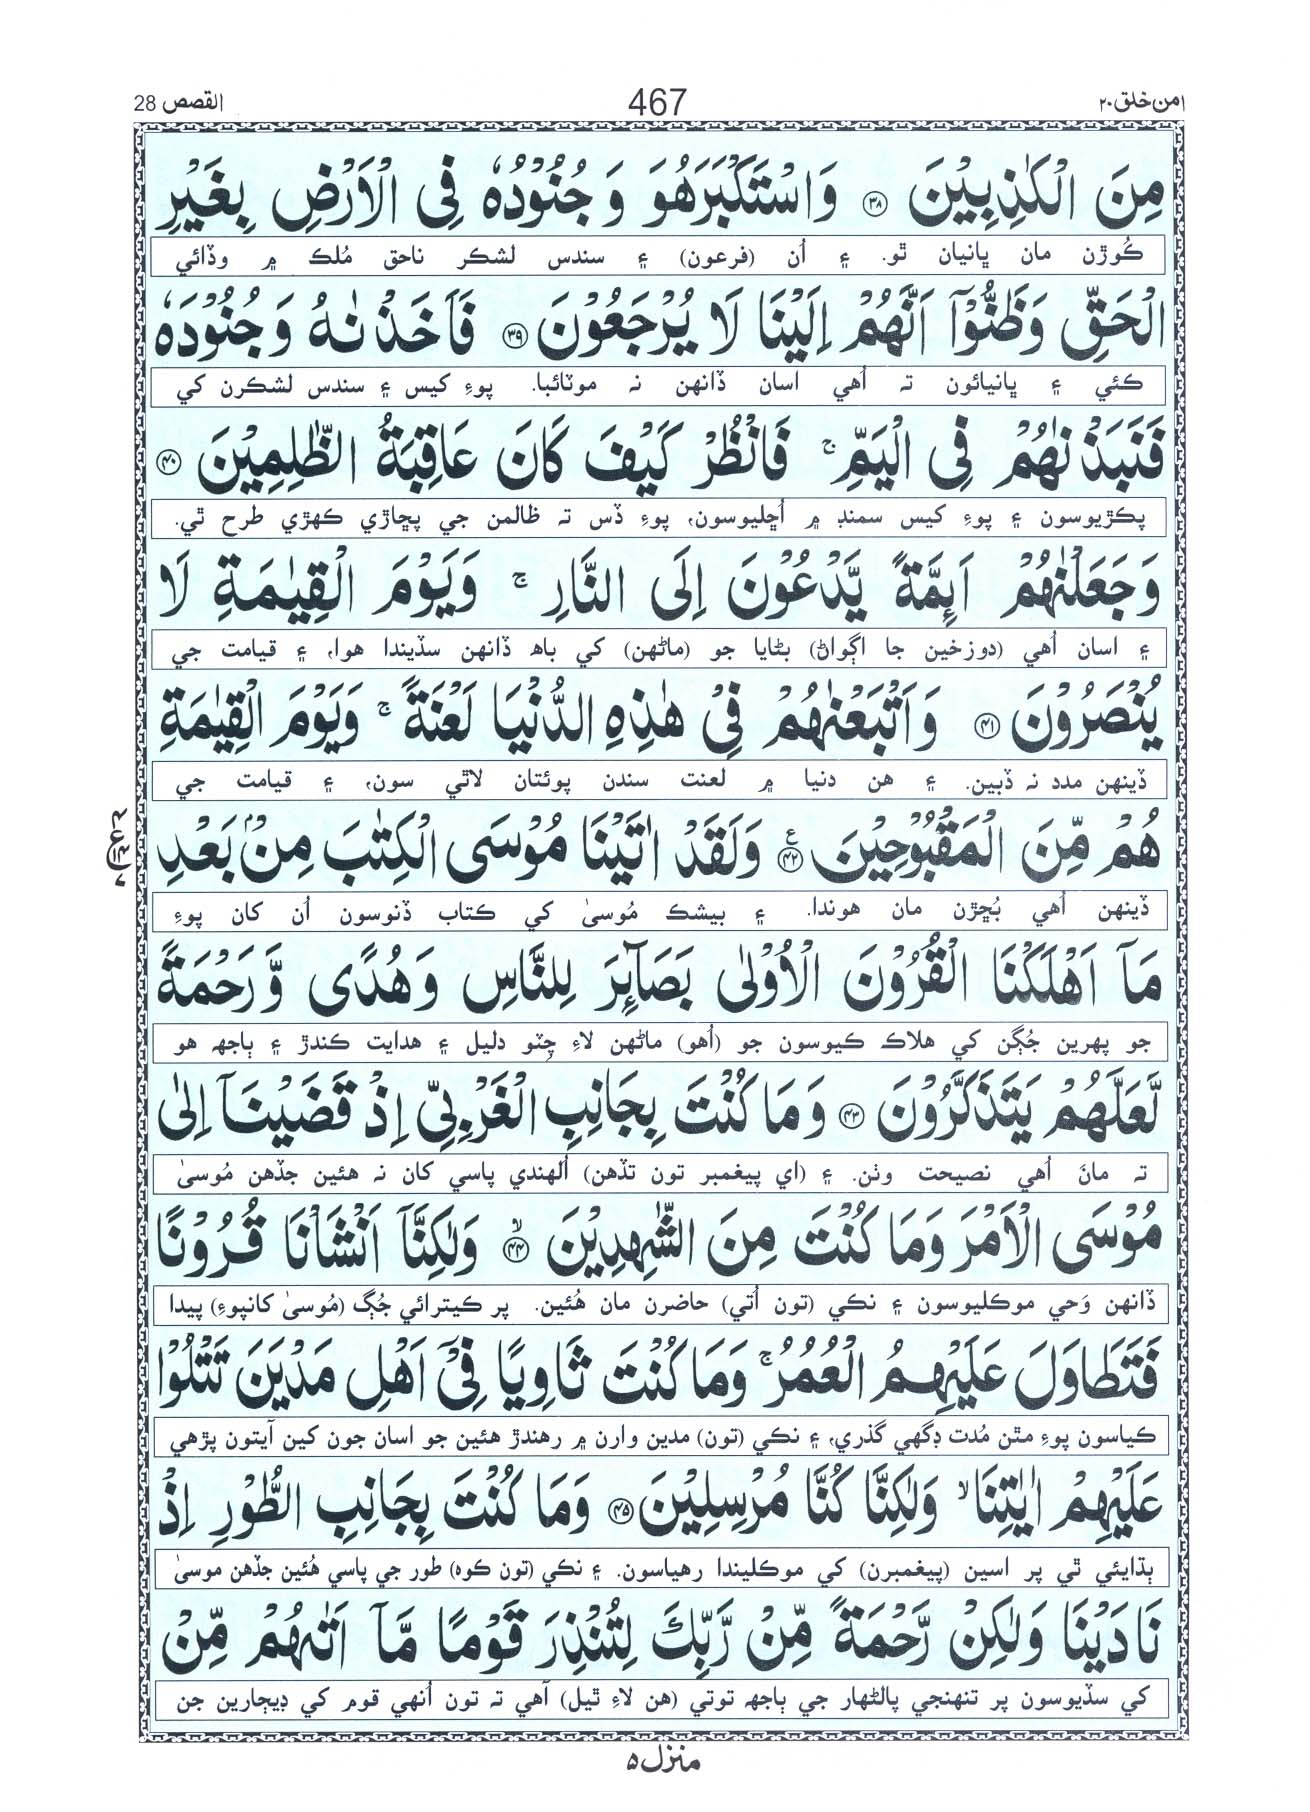 امن خلق ٢٠
467
القصص 28
مِنَ الْكٰذِبِيْنَ ﴿۳۸﴾ وَاسْتَكْبَرَهُوَ وَ جُنُوْدُهٗ فِى الْاَرْضِ بِغَيْرِ
ڪُوڙن مان ڀانيان ٿو. ۽ اُن (فرعون) ۽ سندس لشڪر ناحق مُلڪ ۾ وڏائي
الْحَقِّ وَظَنُّوْٓا اَنَّهُمْ اِلَيْنَا لَا يُرْجَعُوْنَ ﴿۳۹﴾ فَاَخَذْنٰهُ وَجُنُوْدَهٗ
ڪئي ۽ ڀانيائون تہ اُهي اسان ڏانھن نہ موٽائبا. پوءِ کيس ۽ سندس لشڪرن کي
فَنَبَذْنٰهُمْ فِى الْيَمِّ ۚ فَانْظُرْ كَيْفَ كَانَ عَاقِبَةُ الظّٰلِمِيْنَ ﴿۴۰﴾
پڪڙيوسون ۽ پوءِ کيس سمنڊ ۾ اُڇليوسون، پوءِ ڏس تہ ظالمن جي پڇاڙي ڪھڙي طرح ٿي.
وَجَعَلْنٰهُمْ اَىِٕمَّةً يَّدْعُوْنَ اِلَى النَّارِ ۚ وَيَوْمَ الْقِيٰمَةِ لَا
۽ اسان اُهي (دوزخين جا اڳواڻ) بڻايا جو (ماڻھن) کي باھ ڏانھن سڏيندا هوا، ۽ قيامت جي
يُنْصَرُوْنَ ﴿۴۱﴾ وَاَتْبَعْنٰهُمْ فِىْ هٰذِهِ الدُّنْيَا لَعْنَةً ۚ وَيَوْمَ الْقِيٰمَةِ
ڏينھن مدد نہ ڏبين. ۽ هن دنيا ۾ لعنت سندن پوئتان لاٿي سون، ۽ قيامت جي
هُمْ مِّنَ الْمَقْبُوْحِيْنَ ﴿۴۲﴾ۧ وَلَقَدْ اٰتَيْنَا مُوْسَى الْكِتٰبَ مِنْۢ بَعْدِ
ڏينھن اُهي بُڇڙن مان هوندا. ۽ بيشڪ مُوسىٰ کي ڪتاب ڏنوسون اُن کان پوءِ
مَآ اَهْلَكْنَا الْقُرُوْنَ الْاُوْلٰى بَصَآىِٕرَ لِلنَّاسِ وَهُدًى وَّرَحْمَةً
جو پھرين جُڳن کي هلاڪ ڪيوسون جو (اُهو) ماڻھن لاءِ چٽو دليل ۽ هدايت ڪندڙ ۽ ٻاجھہ هو
لَّعَلَّهُمْ يَتَذَكَّرُوْنَ ﴿۴۳﴾ وَمَا كُنْتَ بِجَانِبِ الْغَرْبِىِّ اِذْ قَضَيْنَآ اِلٰى
تہ مانَ اُهي نصيحت وٺن. ۽ (اي پيغمبر تون تڏهن) اُلھندي پاسي کان نہ هئين جڏهن مُوسىٰ
مُوْسَى الْاَمْرَ وَمَا كُنْتَ مِنَ الشّٰهِدِيْنَ ﴿۴۴﴾ۙ وَلٰكِنَّآ اَنْشَاْنَا قُرُوْنًا
ڏانھن وَحي موڪليوسون ۽ نڪي (تون اُتي) حاضرن مان هُئين. پر ڪيترائي جُڳ (مُوسىٰ کانپوءِ) پيدا
فَتَطَاوَلَ عَلَيْهِمُ الْعُمُرُ ۚ وَمَا كُنْتَ ثَاوِيًا فِىْٓ اَهْلِ مَدْيَنَ تَتْلُوْا
ڪياسون پوءِ مٿن مُدت ڊگھي گذري، ۽ نڪي (تون) مدين وارن ۾ رهندڙ هئين جو اسان جون کين آيتون پڙهي
عَلَيْهِمْ اٰيٰتِنَا ۙ وَلٰكِنَّا كُنَّا مُرْسِلِيْنَ ﴿۴۵﴾ وَمَا كُنْتَ بِجَانِبِ الطُّوْرِ اِذْ
ٻڌايئي ٿي پر اسين (پيغمبرن) کي موڪليندا رهياسون. ۽ نڪي (تون ڪوہ) طور جي پاسي هُئين جڏهن موسىٰ
نَادَيْنَا وَلٰكِنْ رَّحْمَةً مِّنْ رَّبِّكَ لِتُنْذِرَ قَوْمًا مَّآ اَتٰىهُمْ مِّنْ
کي سڏيوسون پر تنھنجي پالڻھار جي ٻاجھہ توتي (هن لاءِ ٿيل) آهي تہ تون اُنھي قوم کي ڊيڄارين جن
منزل ٥